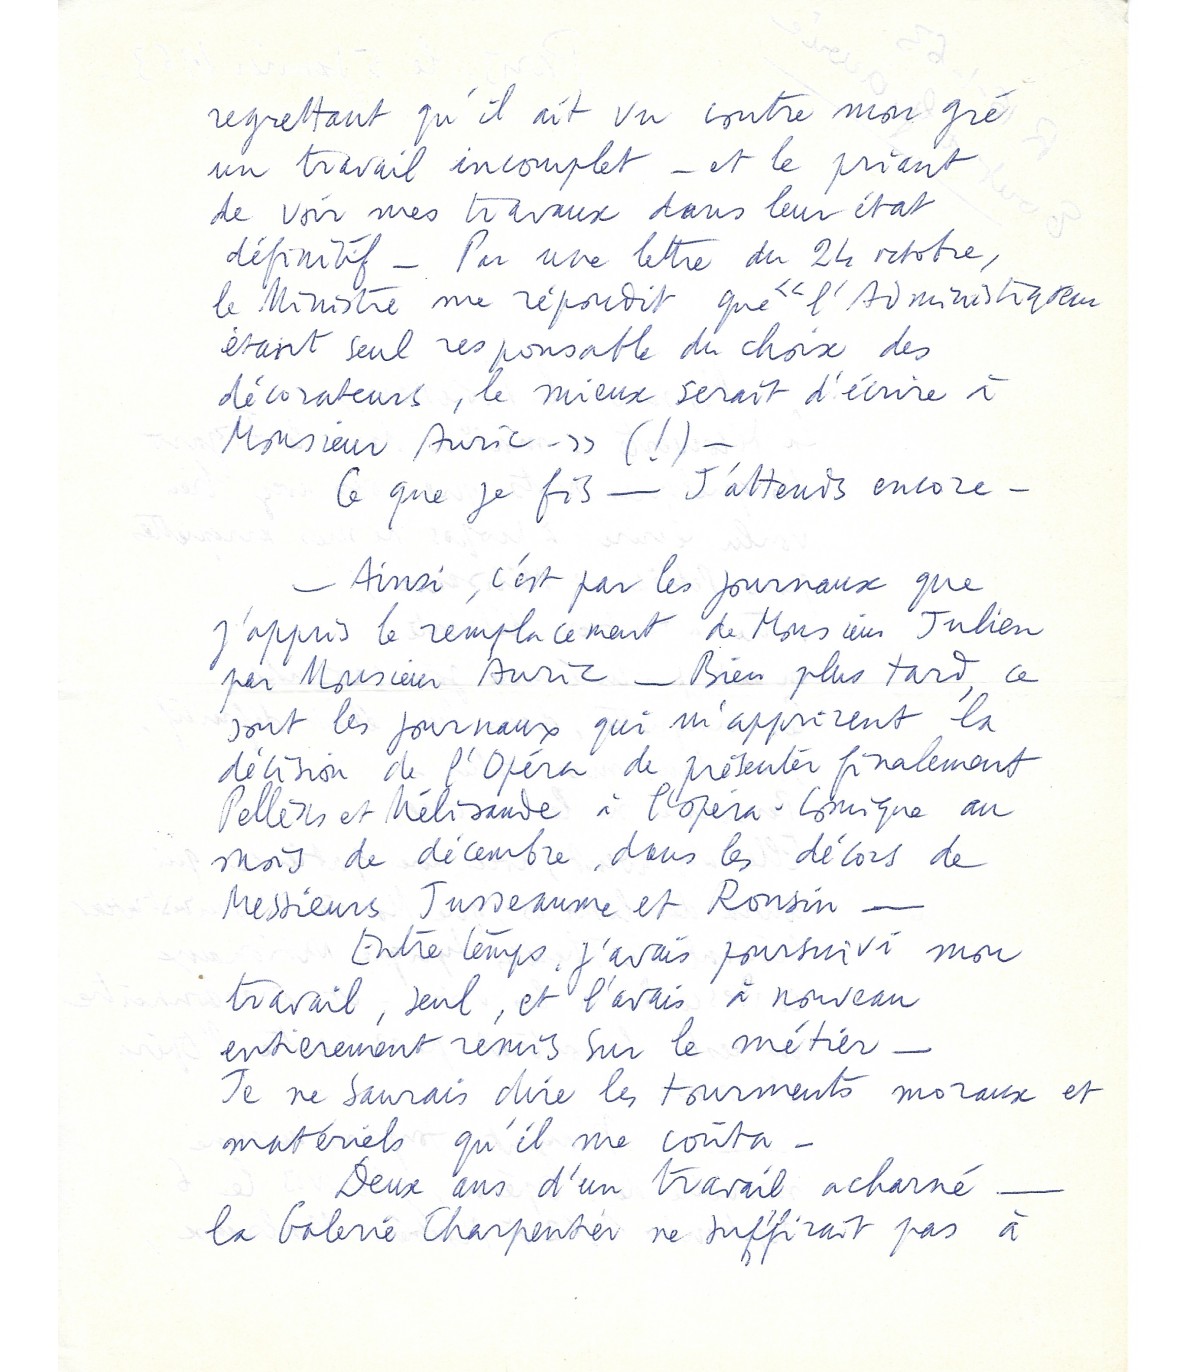 regrettant qu'il ait vu contre mon gré
un travail incomplet – et le priant
de voir mes travaux dans leur état
définitif – Par une lettre du 24 octobre,
le Ministre me répondit que "l'Administrateur
étant seul responsable du choix des
décorateurs, le mieux serait d'écrire à
Monsieur Auric –" (!) –
Ce que je fis — J'attends encore –
– Ainsi, c'est par les journaux que
j'appris le remplacement de Monsieur Julien
par Monsieur Auric — Bien plus tard, ce
sont les journaux qui m'apprirent la
décision de l'Opéra de présenter finalement
Pelléas et Mélisande à l'opéra-Comique au
mois de décembre, dans les décors de
Messieurs Jusseaume et Ronsin —
Entre temps, j'avais poursuivi mon
travail, seul, et l'avais à nouveau
entièrement remis sur le métier –
Je ne saurais dire les tourments moraux et
matériels qu'il me coûta –
Deux ans d'un travail acharné —
la Galerie Charpentier ne suffirait pas à